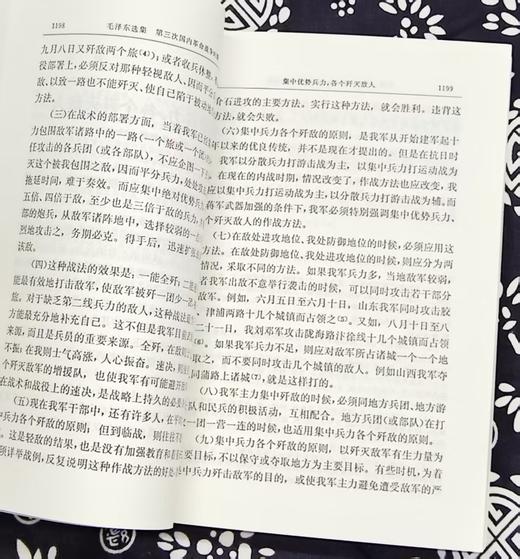 1198
毛泽东选集 第三次国内革命战争时期
九月八日又歼敌两个旅〔4〕；或者收兵休整，
役部署上，必须反对那种轻视敌人、因而平分
敌、以致一路也不能歼灭、使自己陷于被动地
方法。
（三）在战术的部署方面，当着我军已经
力包围敌军诸路中的一路（一个旅或一个团）
任攻击的各兵团（或各部队），不应企图一下子
灭这个被我包围之敌，因而平分兵力，处处
拖延时间，难于奏效。而应集中绝对优势兵力
五倍、四倍于敌，至少也是三倍于敌的兵力，
部的炮兵，从敌军诸阵地中，选择较弱的一点
烈地攻击之，务期必克。得手后，迅速扩张
该敌。
（四）这种战法的效果是：一能全歼；二能
能最有效地打击敌军，使敌军被歼一团少一团
用。对于缺乏第二线兵力的敌人，这种战法最
方能最充分地补充自己。这不但是我军目前
来源，而且是兵员的重要来源。全歼，在敌则
不振；在我则士气高涨，人心振奋。速决，则
个歼灭敌军的增援队，也使我军有可能避开
在战术和战役上的速决，是战略上持久的必要
（五）现在我军干部中，还有许多人，在平时
个歼敌的原则；但到临战，则往往不
。这是轻敌的结果，也是没有加强教育和
须详举战例，反复说明这种作战方法的好处
集中优势兵力，各个歼灭敌人
1199
介石进攻的主要方法。实行这种方法，就会胜利。违背这
方法，就会失败。
（六）集中兵力各个歼敌的原则，是我军从开始建军起十
年以来的优良传统，并不是现在才提出的。但是在抗日时
我军以分散兵力打游击战为主，以集中兵力打运动战为
。在现在的内战时期，情况改变了，作战方法也应改变，我
应以集中兵力打运动战为主，以分散兵力打游击战为辅。而
蒋军武器加强的条件下，我军必须特别强调集中优势兵力、
个歼灭敌人的作战方法。
（七）在敌处进攻地位、我处防御地位的时候，必须应用这
方法。在敌处防御地位、我处进攻地位的时候，则应分为两
情况，采取不同的方法。如果我军兵力多，当地敌军较弱，
者我军出敌不意举行袭击的时候，可以同时攻击若干部分
敌军。例如，六月五日至六月十日，山东我军同时攻击胶
、津浦两路十几个城镇而占领之〔5〕。又如，八月十日至八
二十一日，我刘邓军攻击陇海路汴徐线十几个城镇而占领
〔6〕。如果我军兵力不足，则应对敌军所占诸城一个一个地
取之，而不要同时攻击几个城镇的敌人。例如山西我军夺
同蒲路上诸城〔7〕，就是这样打的。
（八）我军主力集中歼敌的时候，必须同地方兵团、地方游
队和民兵的积极活动，互相配合。地方兵团（或部队）在打
一团一营一连的时候，也适用集中兵力各个歼敌的原则。
（九）集中兵力各个歼敌的原则，以歼灭敌军有生力量为
主要目标，不以保守或夺取地方为主要目标。有些时机，为着
中兵力歼击敌军的目的，或使我军主力避免遭受敌军的严